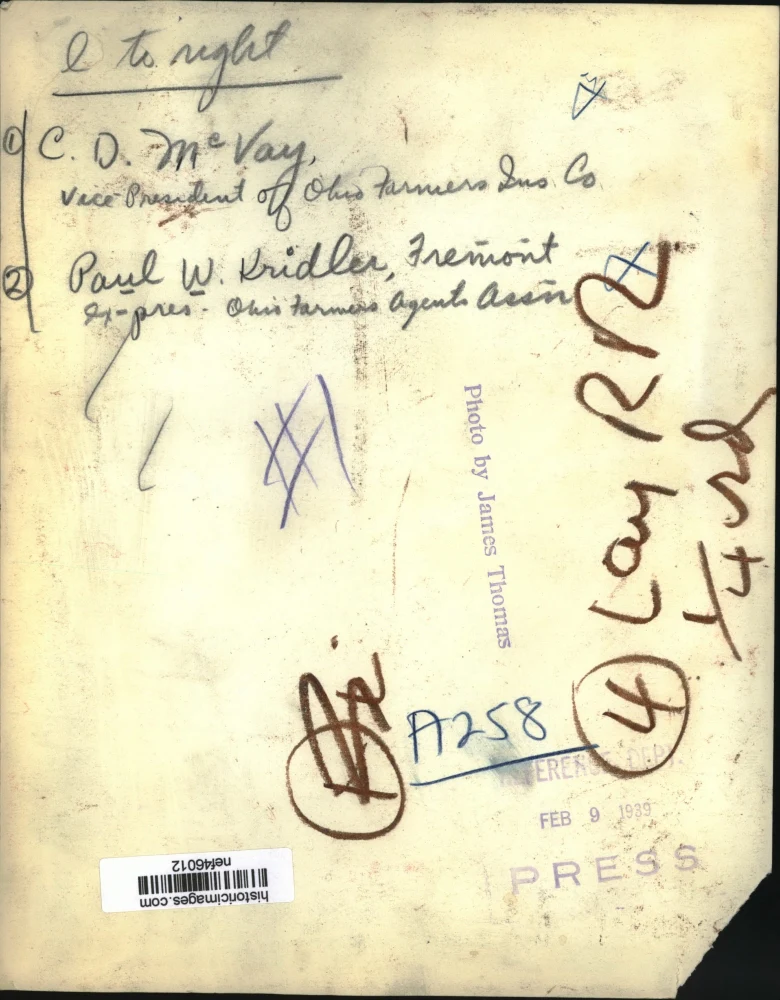 l to right
① C. D. McVay,
Vice-President of Ohio Farmers Ins. Co.
② Paul W. Kridler, Fremont
ex-pres - Ohio Farmers Agents Assn
Photo by James Thomas
4 Lay RR
A258
REFERENCE DEPT.
FEB 9 1939
PRESS
historicimages.com
nef46012